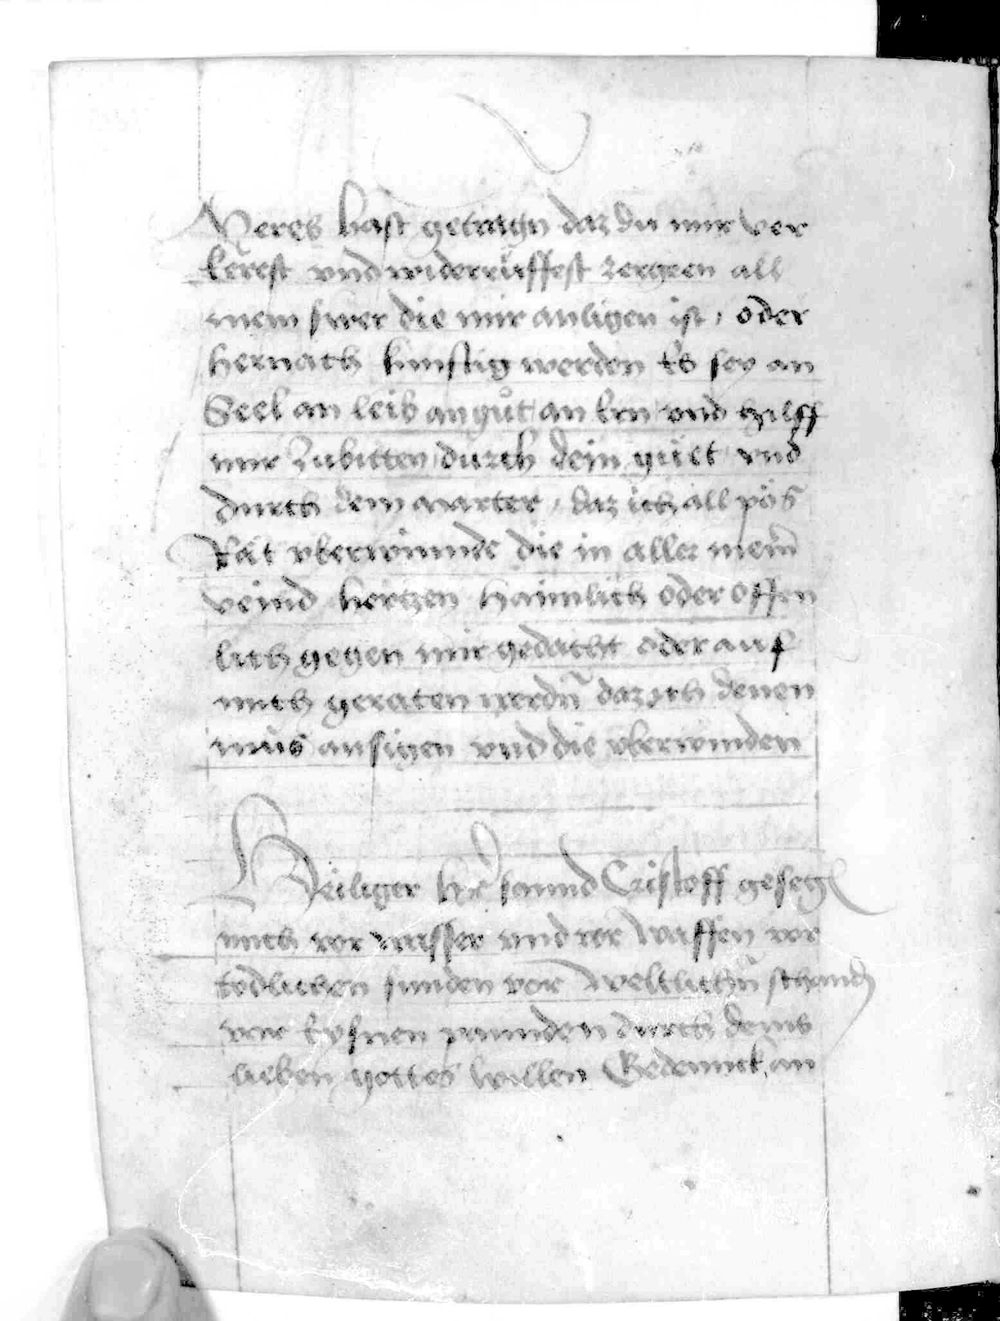 Meres hast getragn daz du mir ver
kerest vnd widerrüffest zergeen all
mein swer die mir anligen ist, oder
hernach kunftig werden Es sey an
Seel an leib an gůt an Ern vnd hilff
mir zubitten durch dein güet vnd
durch dein marter, daz ich all pös
Rät vberwinnde die in aller meinr̄
veind hertzen haimlich oder offen
lich gegen mir gedacht oder auf
mich geraten werdn̄ daz ich denen
müs ansigen vnd die vberwinden
Heiliger her sannd Cristoff gesegn
mich vor wasser vnd vor Waffen vor
todlichen sunden vor Weltlichn̄ schannden
vor Eysnen pannden durch deins
lieben gottes willen Gedennck an